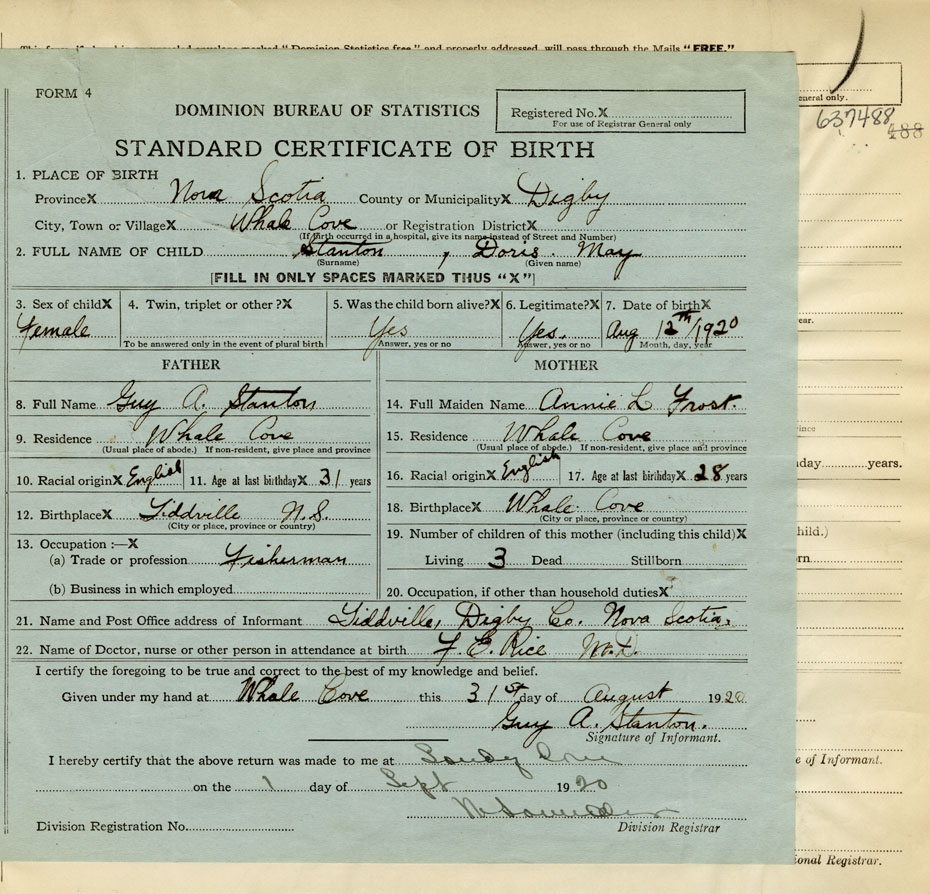 "Dominion Statistics free," and properly addressed, will pass through the Mails "FREE."
FORM 4
DOMINION BUREAU OF STATISTICS
Registered No. X
For use of Registrar General only
eneral only.
637488
488
STANDARD CERTIFICATE OF BIRTH
1. PLACE OF BIRTH
Province X Nova Scotia County or Municipality X Digby
City, Town or Village X Whale Cove or Registration District X
(If birth occurred in a hospital, give its name instead of Street and Number)
2. FULL NAME OF CHILD Stanton, Doris May
(Surname) (Given name)
[FILL IN ONLY SPACES MARKED THUS "X"]
3. Sex of child X 4. Twin, triplet or other ? X 5. Was the child born alive? X 6. Legitimate? X 7. Date of birth X
Female Yes Yes. Aug 12th/1920
To be answered only in the event of plural birth Answer, yes or no Answer, yes or no Month, day, year
ear.
FATHER MOTHER
8. Full Name Guy A. Stanton 14. Full Maiden Name Annie L Frost.
9. Residence Whale Cove 15. Residence Whale Cove
(Usual place of abode.) If non-resident, give place and province (Usual place of abode.) If non-resident, give place and province
ince
10. Racial origin X English 11. Age at last birthday X 31 years 16. Racial origin X English 17. Age at last birthday X 28 years
day years.
12. Birthplace X Tiddville N.S. 18. Birthplace X Whale Cove
(City or place, province or country) (City or place, province or country)
13. Occupation :—X 19. Number of children of this mother (including this child) X
hild.)
(a) Trade or profession Fisherman Living 3 Dead Stillborn
rn
(b) Business in which employed 20. Occupation, if other than household duties X
21. Name and Post Office address of Informant Tiddville, Digby Co. Nova Scotia.
22. Name of Doctor, nurse or other person in attendance at birth F. E. Rice M.D.
I certify the foregoing to be true and correct to the best of my knowledge and belief.
Given under my hand at Whale Cove this 31st day of August 1920
Guy A. Stanton.
Signature of Informant.
I hereby certify that the above return was made to me at Sandy Cove
e of Informant.
on the 1 day of Sept 1920
Division Registration No. Division Registrar
ional Registrar.